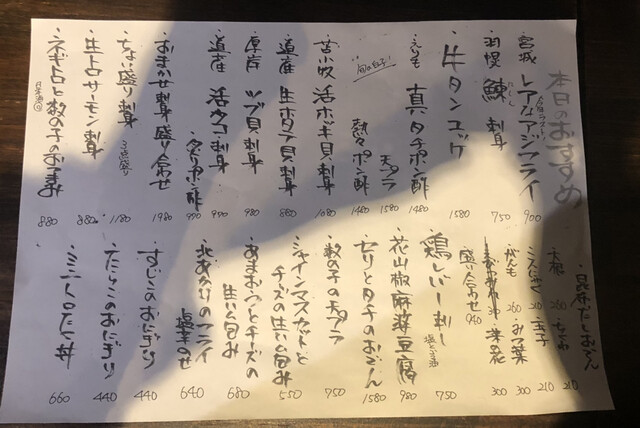 本日のおすすめ
・宮城 レアなアジフライ 900
・羽幌 鰊刺身 750
にしん
・牛タンユッケ 1580
・えりも 真タチポン酢 1480
天プラ 1580
熱々ポン酢 1480
・苫小牧 活ホッキ貝刺身 1080
・道産 生ホタテ貝刺身 880
・厚岸 ツブ貝刺身 980
・道産 活タコ刺身 950
・おまかせ刺身盛り合わせ 1980
・ちょい盛り刺身 3点盛り 1180
・生トロサーモン刺身 880
・ネギトロと数の子のおつまみ 880
昆布だしおでん
・大根 210
・ちくわ 210
・こんにゃく 210
・玉子 210
・がんも 260
・みつ葉 300
・菜の花 300
盛り合わせ 940
・鶏レバー刺し 750
・花山椒麻婆豆腐 980
・セリとタチのおでん 1580
・数の子の天プラ 750
・シャインマスカットとチーズの生ハム包み 550
・あまおうとチーズの生ハム包み 680
・北あかりのフライ 塩辛のせ 640
・すじこのおにぎり 440
・たらこのおにぎり 440
・ミニトロたく丼 660